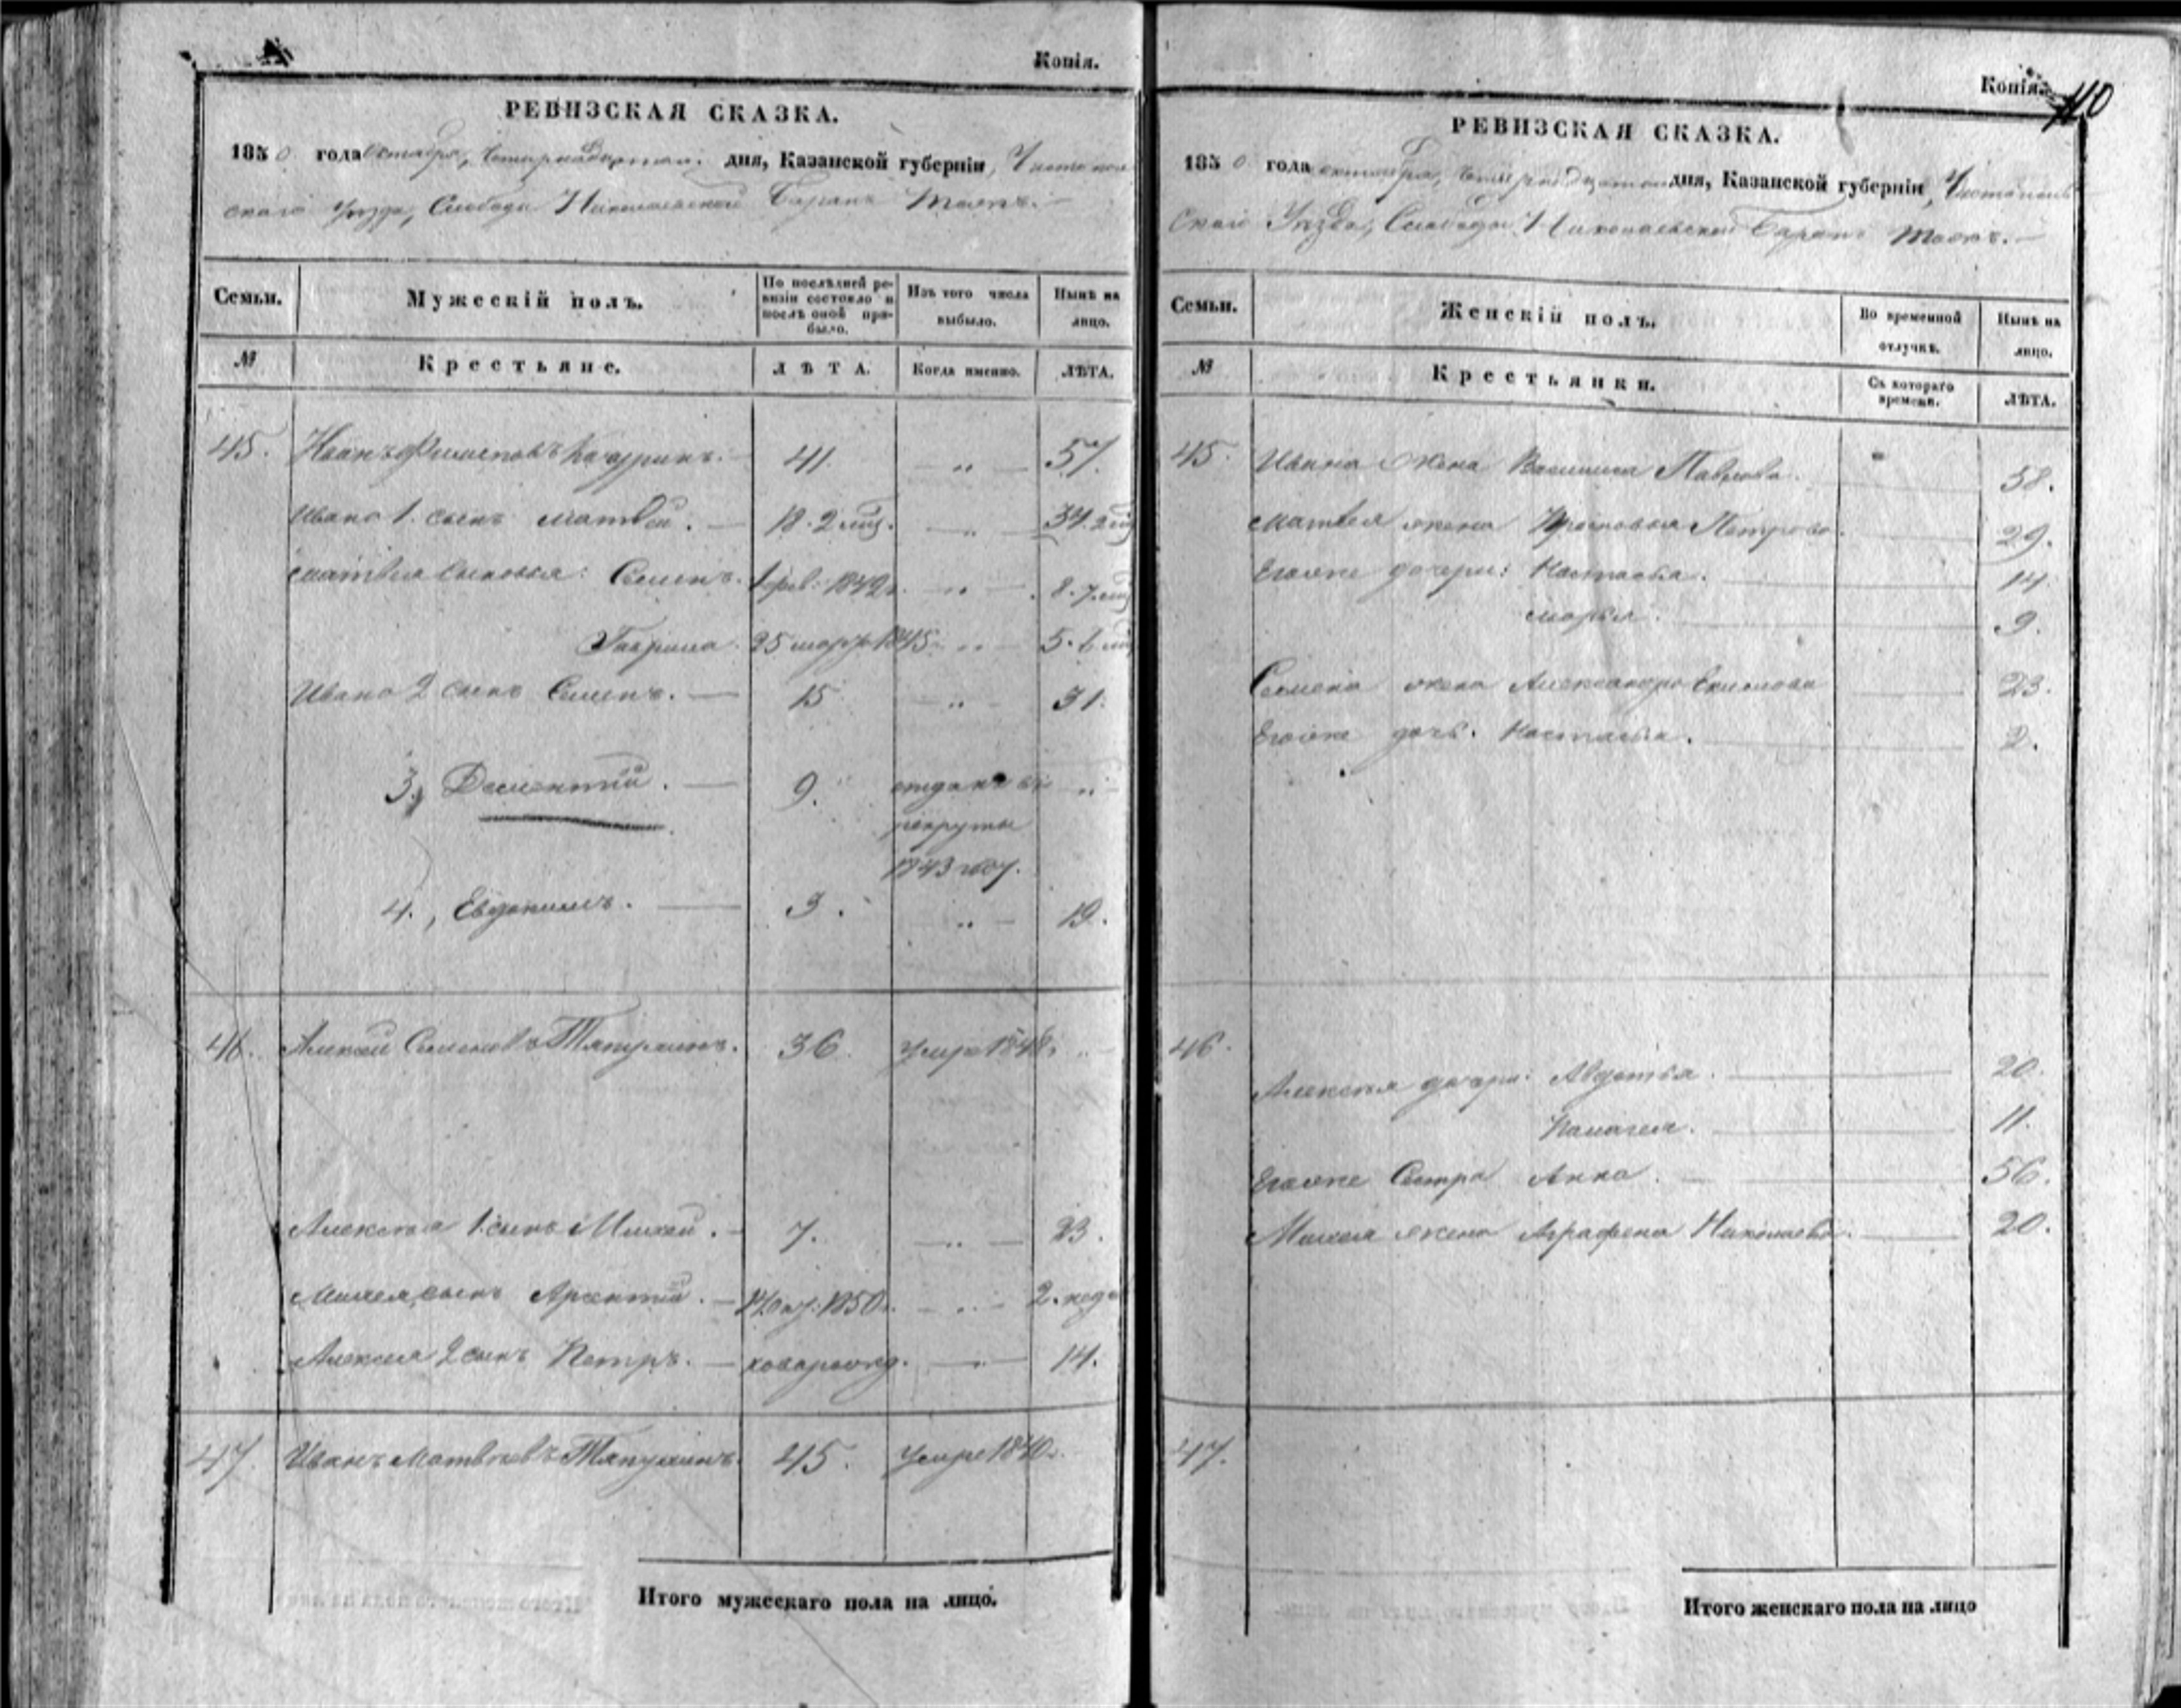 Копія.
РЕВИЗСКАЯ СКАЗКА.
1850 года октября, четырнадцатаго дня, Казанской губерніи, Чистополь
скаго уѣзда, Слободы Николаевской Баранъ тожъ.
Семьи.
Мужескій полъ.
По послѣдней ре-
визіи состояло и
послѣ оной при-
было.
Изъ того числа
выбыло.
Нынѣ на
лицо.
№
Крестьяне.
ЛѢТА.
Когда именно.
ЛѢТА.
45. Иванъ Филиповъ 41. " 57.
Ивана 1. сынъ Матвѣй. 18. 2 мѣс. " 34. 2 мѣс
Матвѣя сыновья: Семенъ. 1 фев: 1842 г. " 8. 7. мѣс
Гаврила. 25 мар 1845 " 5. 6 мѣс
Ивана 2 сынъ Семенъ. 15 " 31.
3, Дементій. 9. отданъ въ "
рекруты
1843 году.
4., Евдокимъ. 3. " 19.
46. Алексѣй Семеновъ Тяпухинъ. 36. умре 1848 г. "
Алексѣя 1. сынъ Михей. 7. " 23.
Михея сынъ Арсентій. 1850 г. " 2. недѣ
Алексѣя 2 сынъ Петръ. " 14.
47. Иванъ Матвѣевъ Тяпухинъ. 45. умре 1840 г.
Итого мужескаго пола на лицо.
Копія.
110
РЕВИЗСКАЯ СКАЗКА.
1850 года октября, четырнадцатаго дня, Казанской губерніи, Чистополь
скаго Уѣзда, Слободы Николаевской Баранъ тожъ.
Семьи.
Женскій полъ.
Во временной
отлучкѣ.
Нынѣ на
лицо.
№
Крестьянки.
Съ котораго
времени.
ЛѢТА.
45. Ивана жена Василиса Павлова. 58.
Матвея жена Прасковья Петрова. 29.
Егоже дочери: Настасья. 14.
Марья. 9.
Семена жена Александра 23.
Егоже дочь. Настасья. 2.
46.
Алексѣя дочери: Авдотья. 20.
Палагея. 11.
Егоже Сестра Анна. 56.
Михея жена Аграфена Николаева. 20.
47.
Итого женскаго пола на лицо